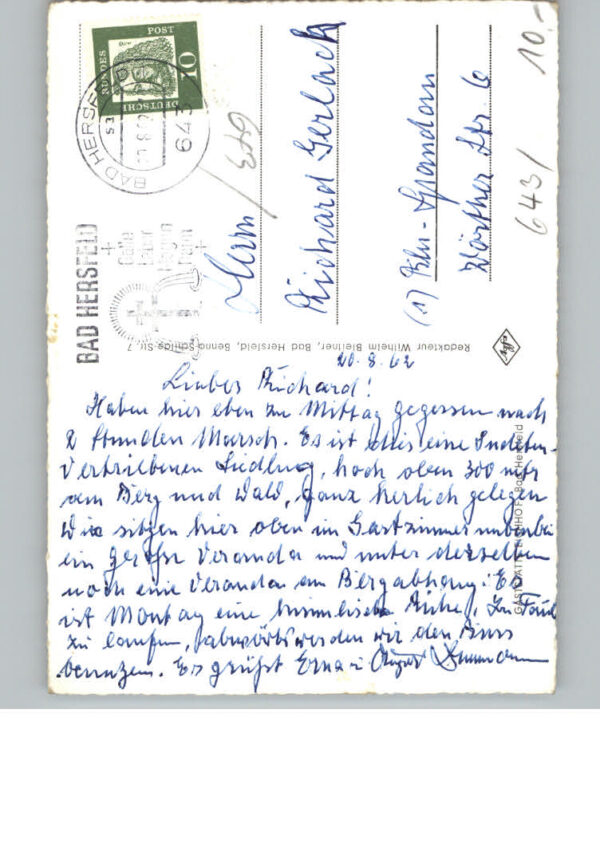 DEUTSCHE
BUNDES
POST
10
Dürer
BAD HERSFELD
643
BAD HERSFELD
Galle
Leber
Magen
Darm
643
10.-
643/
Herrn
Richard Gerlach
(1) Bln-Spandau
Wörther Str. 6
Redakteur Wilhelm Bleitner, Bad Hersfeld, Benno-Schilde-Str. 7
Agfa
20.8.62
Lieber Richard!
Haben hier eben zu Mittag gegessen nach
2 Stunden Marsch. Es ist dies eine Sudeten-
Vertriebenen Siedlung, hoch oben 300 mtr
am Berg und Wald, ganz herlich gelegen
Wir sitzen hier oben im Gastzimmer nebenbei
ein große Veranda und unter derselben
noch eine Veranda am Bergabhang. Es
ist Montag eine himmlische Ruhe. Zu Fuß
zu laufen, abwärts werden wir den Bus
benuzen. Es grüßt Erna